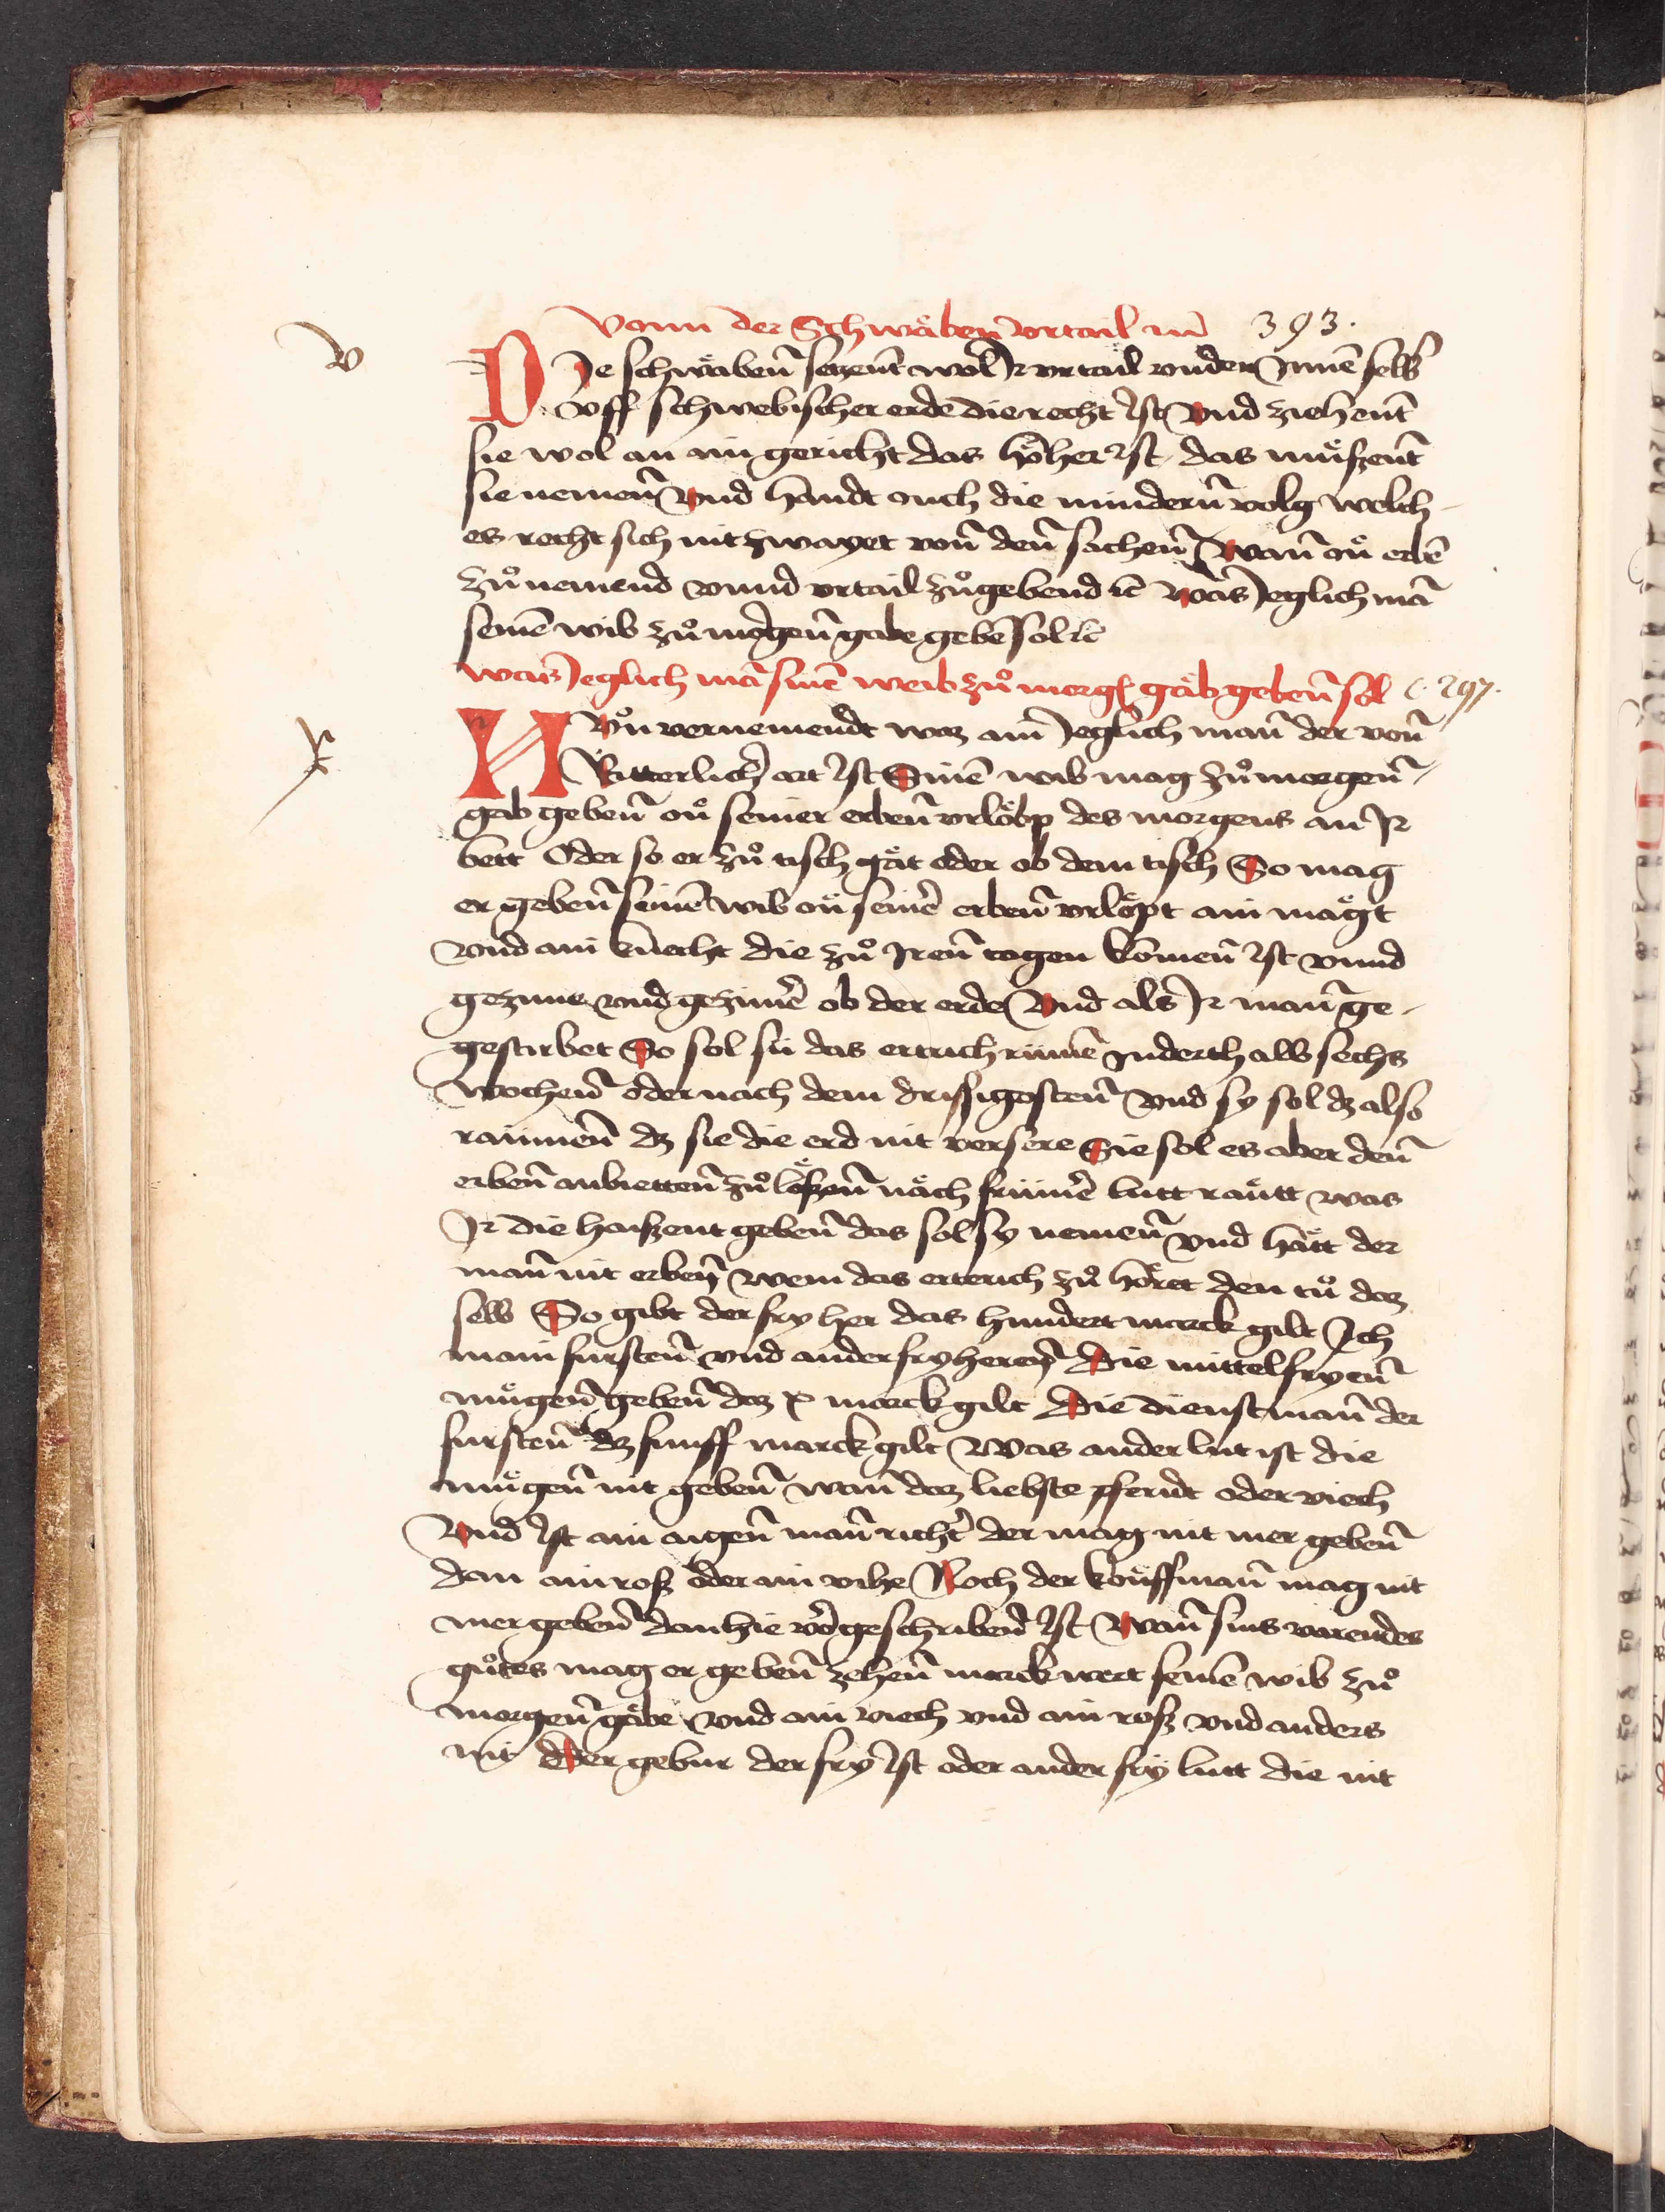 Vonn der Schwäben̄ vrtail in̄ 393.
v
DJe schwäben̄ setzent̄ wol Jr vrtail vnder Jnnē selbs
Vff schwebischer erde die recht Jst Vnd ziehent̄
sie wol an ain gericht das höher Jst das müszent̄
sie nemen̄ Vnd handt ouch die mindern̄ volg welch-
es recht sich nit zwayet von̄ den̄ sachen̄ Wan̄ on̄ erbē
zů nemend vnnd vrtail zů gebend rc̄ Was Jeglich mā
seinē wib zů morgen̄ gabe gebē sol rc̄
Was Jeglich mā sinē weib zů morgē gäb geben̄ sol c. 297.
x
NVn̊ vernemendt waz ain Jeglich man̄ der von̄
Ritterlicher art Jst Sinē wib mag zů morgen̄
gab geben̄ on̊ seiner erben̄ vrlöbp des morgens an Jr
bett Oder so er zů tisch gät oder ob dem tisch So mag
er geben̄ seinē wib on̊ seinē erben̄ vrlöpt ain mägt
vnd ain knecht die zů Jren̄ tagen komen̄ Jst vnnd
gezüne vnd gezimē ob der erde Vnd als Jr man̄ ge-
gestirbet So sol sü das ertrich rümē Jnderthalb sechs
wochen̄ oder nach dem drissigosten̄ Vnd sy sol dz also
raümen̄ dz sie die erd nit versere Sie sol es aber den̄
erben̄ anbietten̄ zů lößen̄ näch frümē lutt rätt was
Jr die haißent geben̄ das sol sy nemen̄ vnd hätt der
man̄ nit erben̄ wem das erterich zů höret den tů daz
selb So gibt der fry her das hundert marck gilt Jch
main fursten̄ vnd ander fry heren̄ Die mittel fryen̄
mügen̄ geben̄ daz x marck gilt Die dienstman̄ der
fursten̄ dz funff marck gilt Was ander lut ist die
mügen̄ nit geben̄ wan̄ daz liebste pferidt oder viech
Vnd Jst ain aigen̄ man̄ richt̄ der mag nit mer geben̄
dan ain roß oder ain vihe Noch der kouffman̄ mag nit
mer geben̄ dan hie vor geschriben̄ Jst Wan̄ sins varendes
gůtes mag er geben̄ zehen̄ marck wert seinē wib zů
morgen̄ gäbe vnd ain viech vnd ain roß vnd anders
nit Der gebur der fry Jst oder ander fry lutt die nit